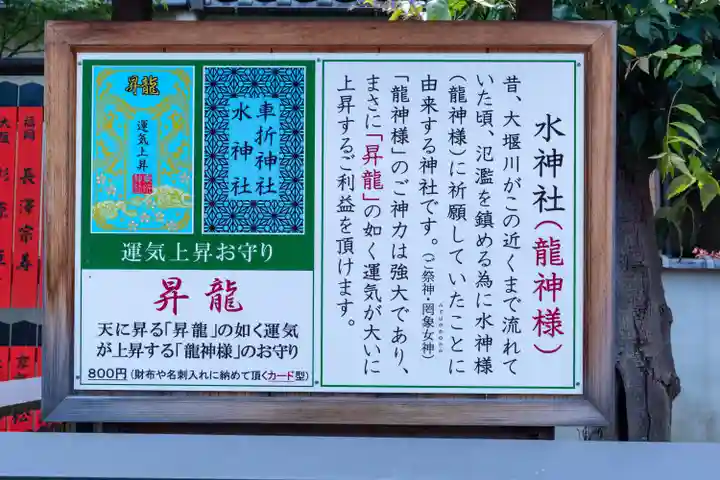 水神社(龍神様)
昔、大堰川がこの近くまで流れて
いた頃、氾濫を鎮める為に水神様
(龍神様)に祈願していたことに
由来する神社です。(ご祭神・罔象女神)
「龍神様」のご神力は強大であり、
まさに「昇龍」の如く運気が大いに
上昇するご利益を頂けます。
昇龍
運気上昇
車折神社
水神社
運気上昇お守り
昇龍
天に昇る「昇龍」の如く運気
が上昇する「龍神様」のお守り
800円(財布や名刺入れに納めて頂くカード型)
長澤宗寿
大阪